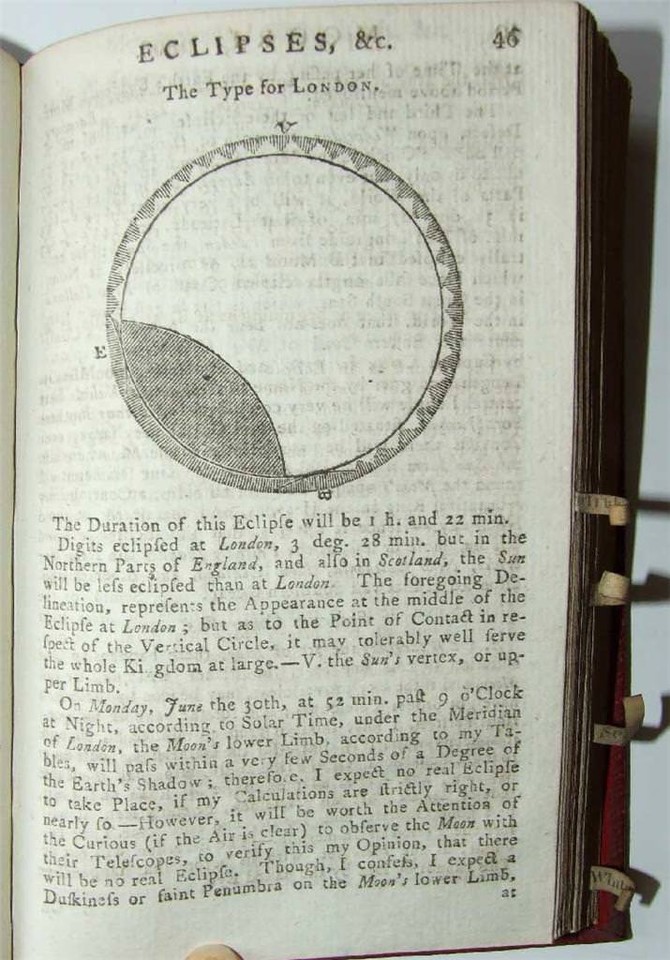 ECLIPSES, &c. 46
The Type for LONDON.
V
E
B
The Duration of this Eclipſe will be 1 h. and 22 min.
Digits eclipſed at London, 3 deg. 28 min. but in the
Northern Parts of England, and alſo in Scotland, the Sun
will be leſs eclipſed than at London. The foregoing De-
lineation, repreſents the Appearance at the middle of the
Eclipſe at London; but as to the Point of Contact in re-
ſpect of the Vertical Circle, it may tolerably well ſerve
the whole Ki gdom at large.—V. the Sun's vertex, or up-
per Limb.
On Monday, June the 30th, at 52 min. paſt 9 o'Clock
at Night, according to Solar Time, under the Meridian
of London, the Moon's lower Limb, according to my Ta-
bles, will paſs within a very few Seconds of a Degree of
the Earth's Shadow; therefo.e, I expect no real Eclipſe
to take Place, if my Calculations are ſtrictly right, or
nearly ſo.—However, it will be worth the Attention of
the Curious (if the Air is clear) to obſerve the Moon with
their Teleſcopes, to verify this my Opinion, that there
will be no real Eclipſe. Though, I confeſs, I expect a
Duſkineſs or faint Penumbra on the Moon's lower Limb,
at